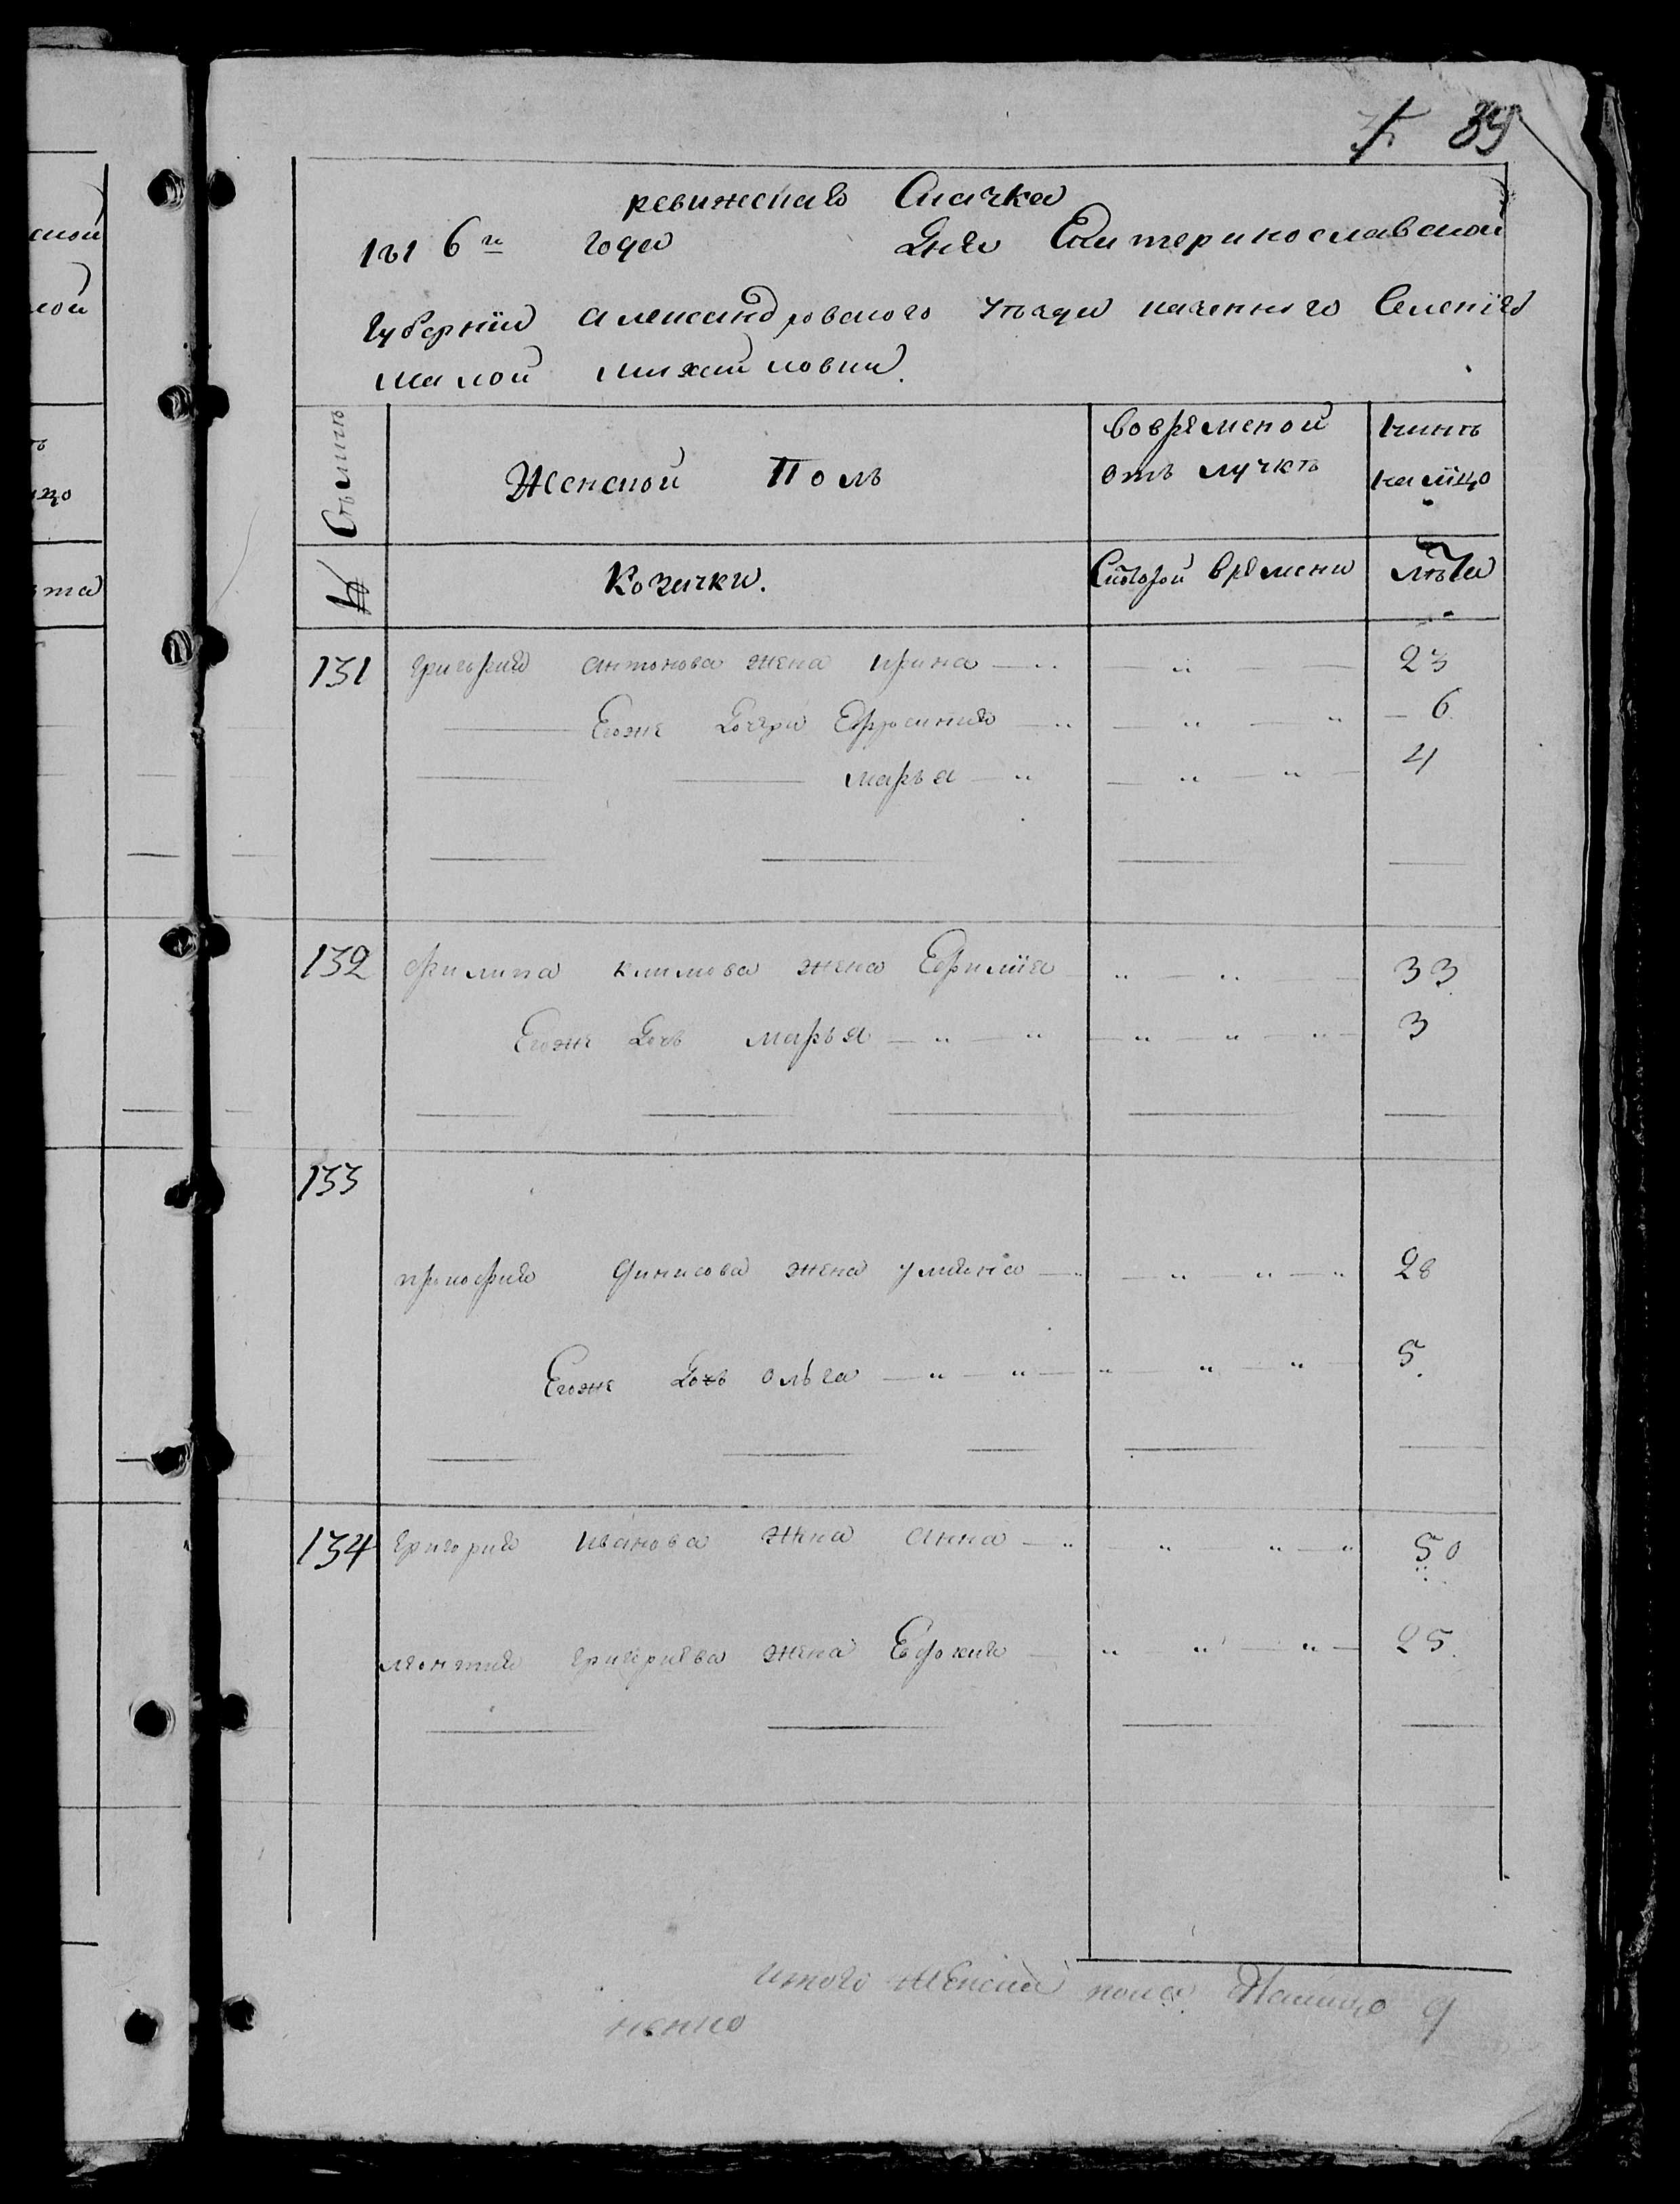 89
ревижскаго Спичка
181 6го года Дня Екатеринославской
Губернии Александровского уезда казенного Селения
малой михайловки.
Семьи
Женской Полъ
вовременой отъ лучкъ
нынѣ на лицо
№
Козачки.
С которой времени
лѣта
131 григория антонова жена ирина 23
Егоже дочери Ефросиния 6
марья 4
132 филипа климова жена Ефимия 33
Егоже дочь марья 3
133
прокофия динисова жена улияна 28
Егоже дочь ольга 5.
134 григория иванова жена анна 50
леонтия григориева жена Евдокия 25.
итого женска пола Налицо 9